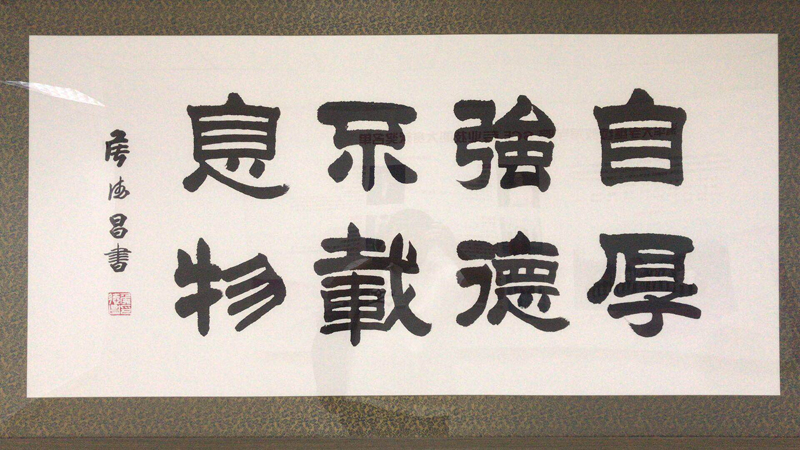 自強不息
厚德載物
侯德昌書